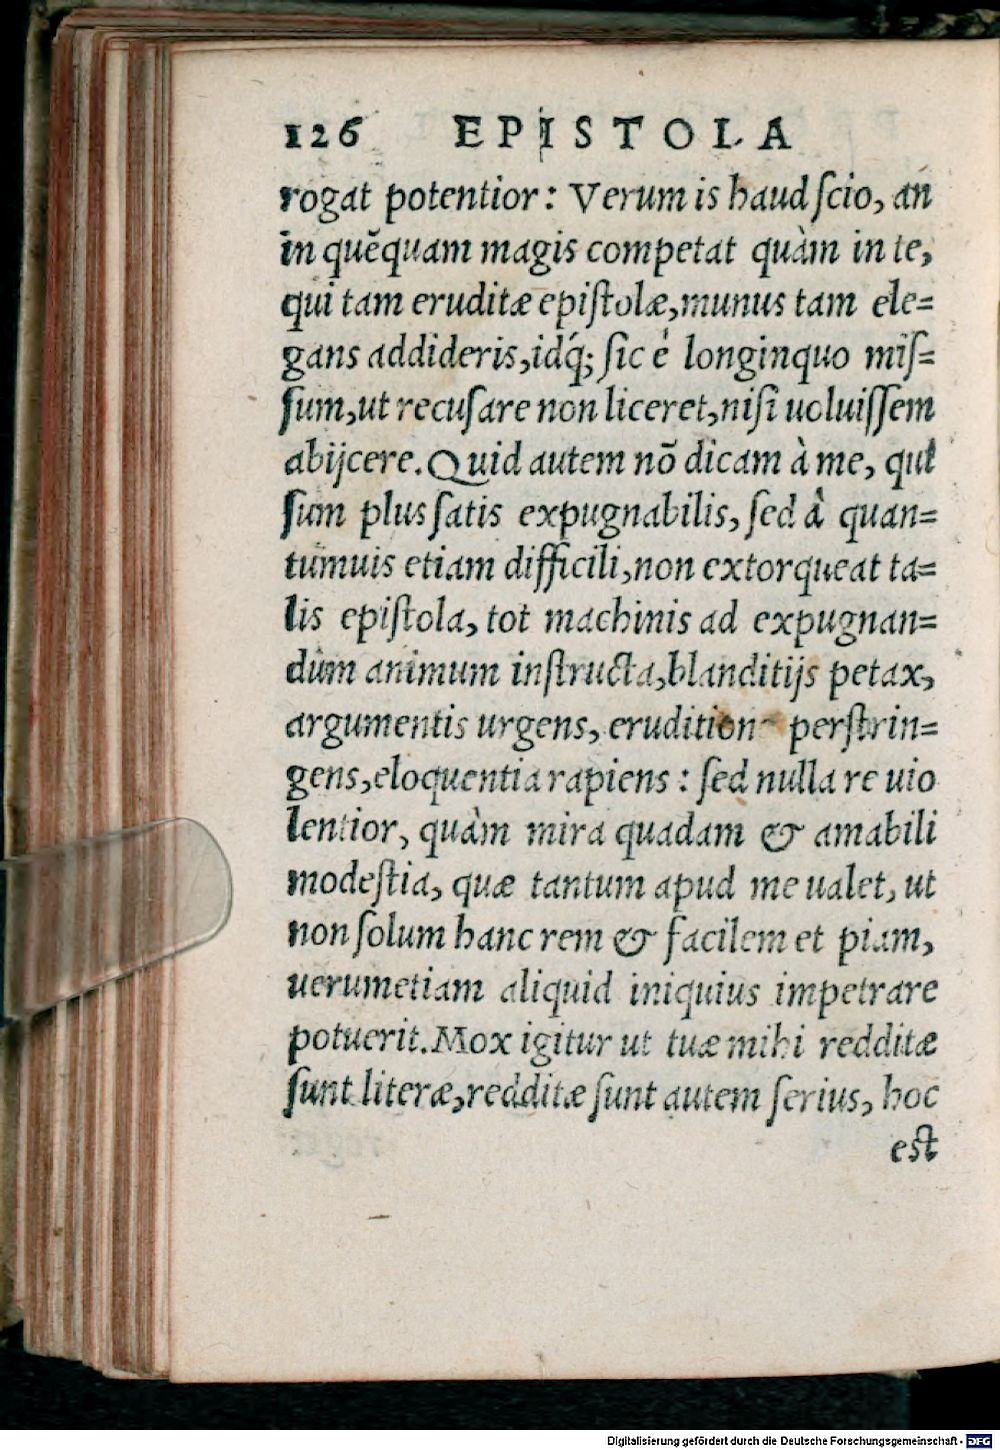 126 EPISTOLA
rogat potentior: Verum is haud ſcio, an
in quēquam magis competat quàm in te,
qui tam eruditæ epiſtolæ, munus tam ele=
gans addideris, idq́; ſic è longinquo miſ=
ſum, ut recuſare non liceret, niſi uoluiſſem
abijcere. Quid autem nō dicam à me, qui
ſum plus ſatis expugnabilis, ſed à quan=
tumuis etiam difficili, non extorqueat ta=
lis epiſtola, tot machinis ad expugnan=
dum animum inſtructa, blanditijs petax,
argumentis urgens, erudition perſtrin=
gens, eloquentia rapiens: ſed nulla re uio
lentior, quàm mira quadam & amabili
modeſtia, quæ tantum apud me ualet, ut
non ſolum hanc rem & facilem et piam,
uerumetiam aliquid iniquius impetrare
potuerit. Mox igitur ut tuæ mihi redditæ
ſunt literæ, redditæ ſunt autem ſerius, hoc
eſt
Digitalisierung gefördert durch die Deutsche Forschungsgemeinschaft - DFG